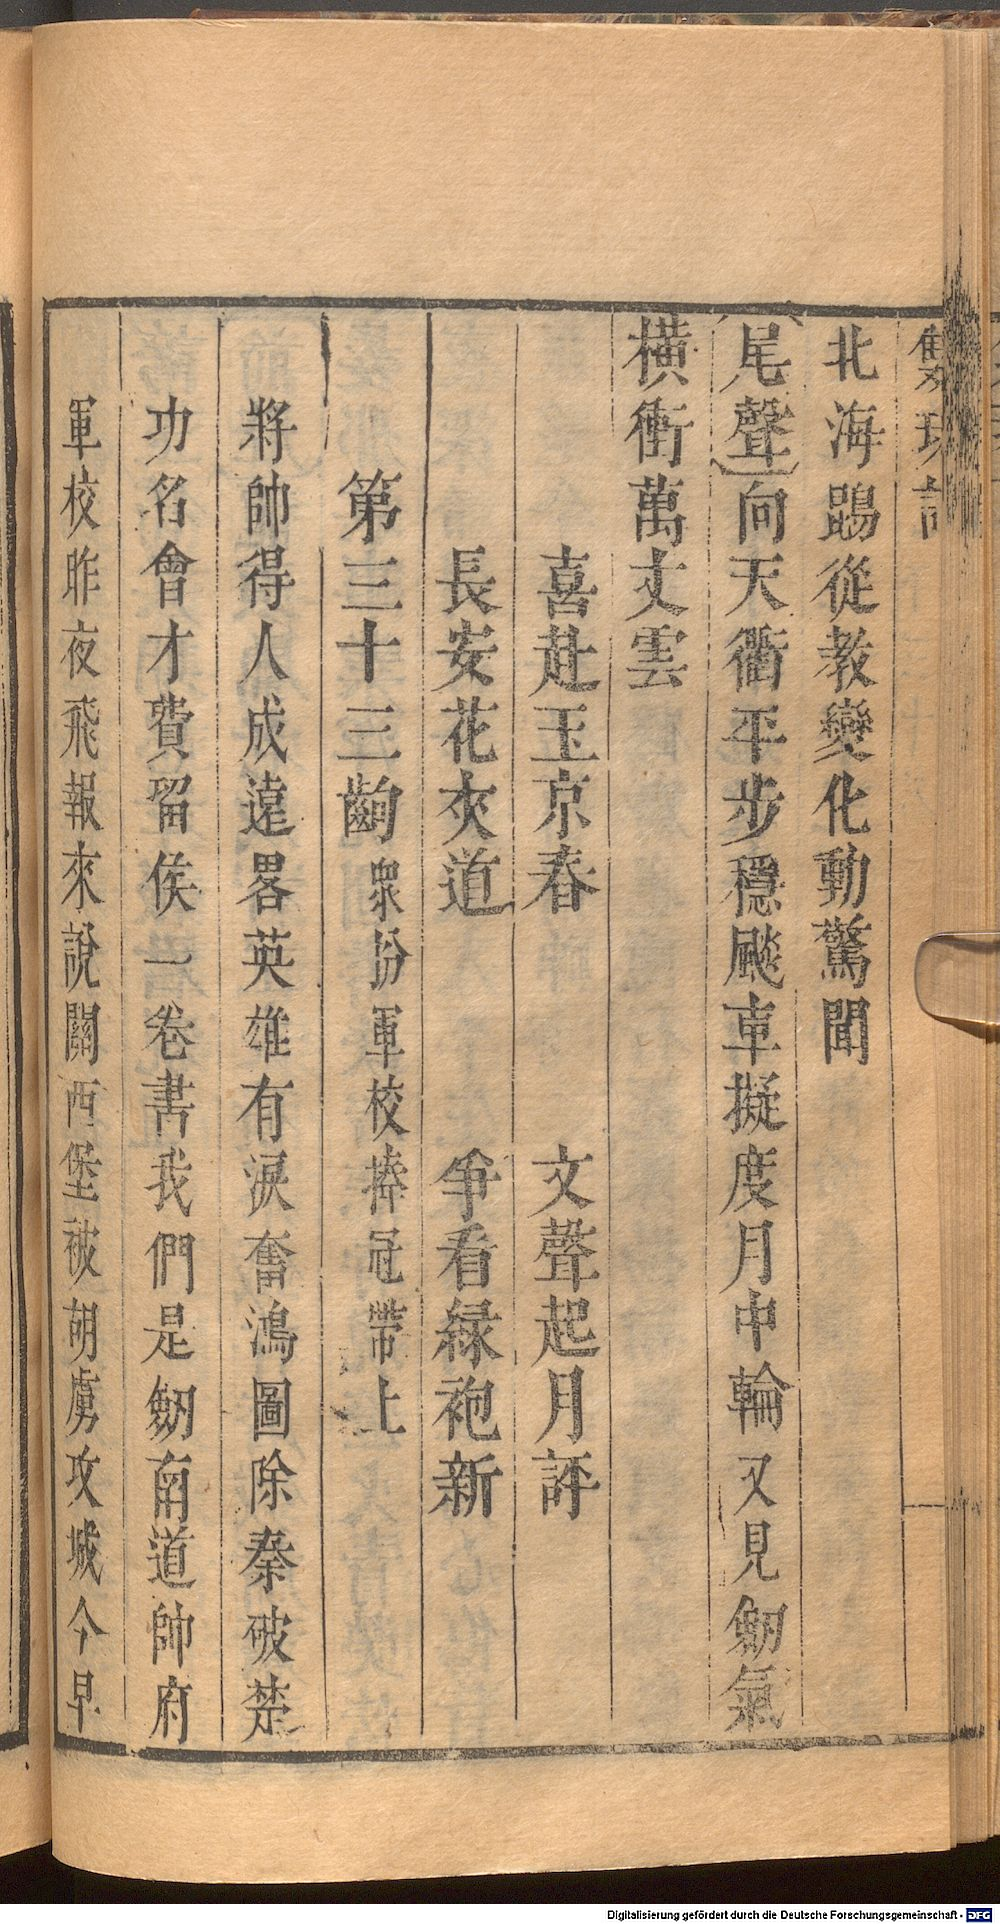 雙珠記
北海鵾從教變化動驚聞
尾聲 向天衢平步穩飈車擬度月中輪又見劒氣
橫衝萬丈雲
喜赴玉京春 文聲起月評
長安花夾道 爭看緑袍新
第三十三齣 衆扮軍校捧冠帶上
將帥得人成遠畧英雄有淚奮鴻圖除秦破楚
功名會才費留侯一卷書我們是劒南道帥府
軍校昨夜飛報來說關西堡被胡虜攻城今早
Digitalisierung gefördert durch die Deutsche Forschungsgemeinschaft - DFG